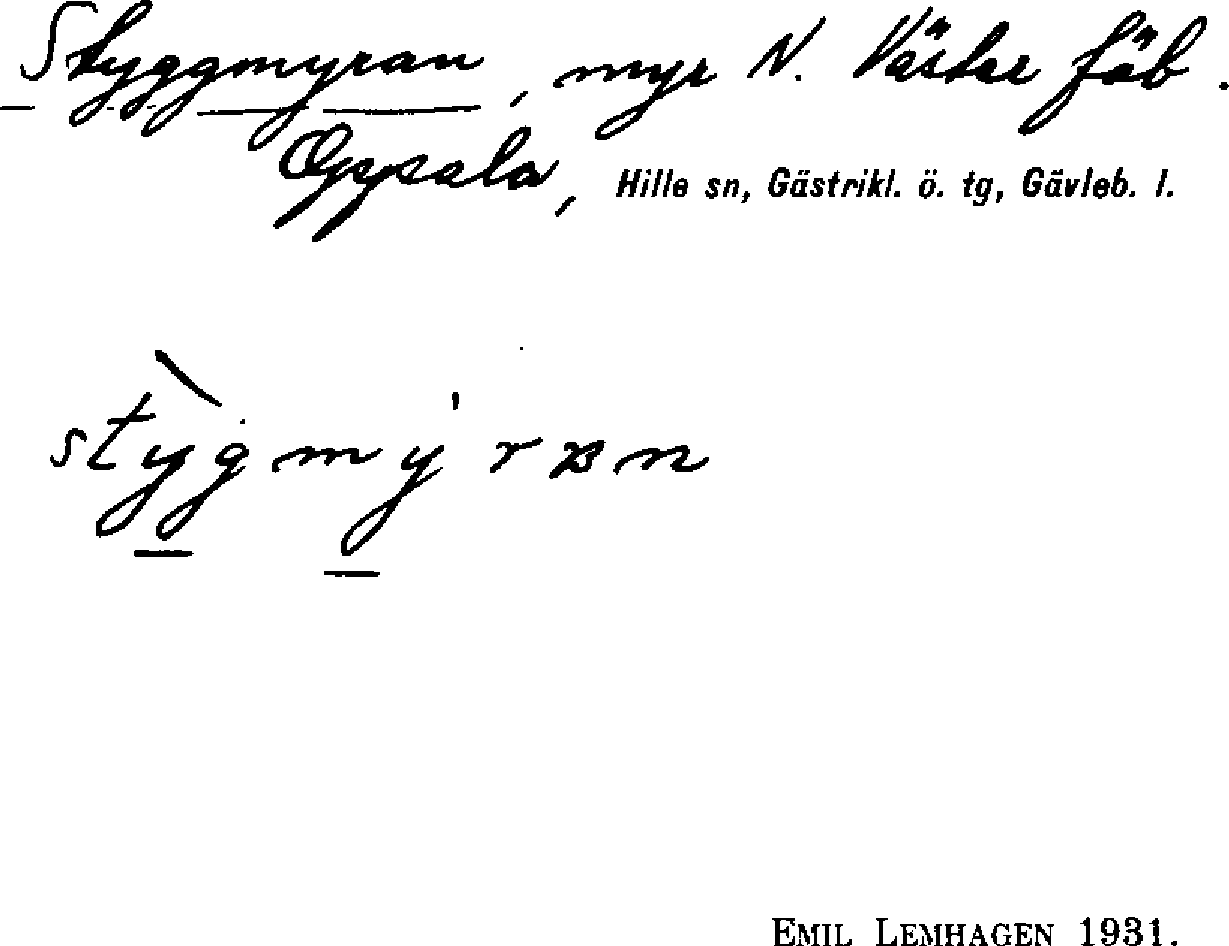 Styggmyran, myr N. Västar fäb.
Oppsala, Hille sn, Gästrikl. ö. tg, Gävleb. l.
EMIL LEMHAGEN 1931.